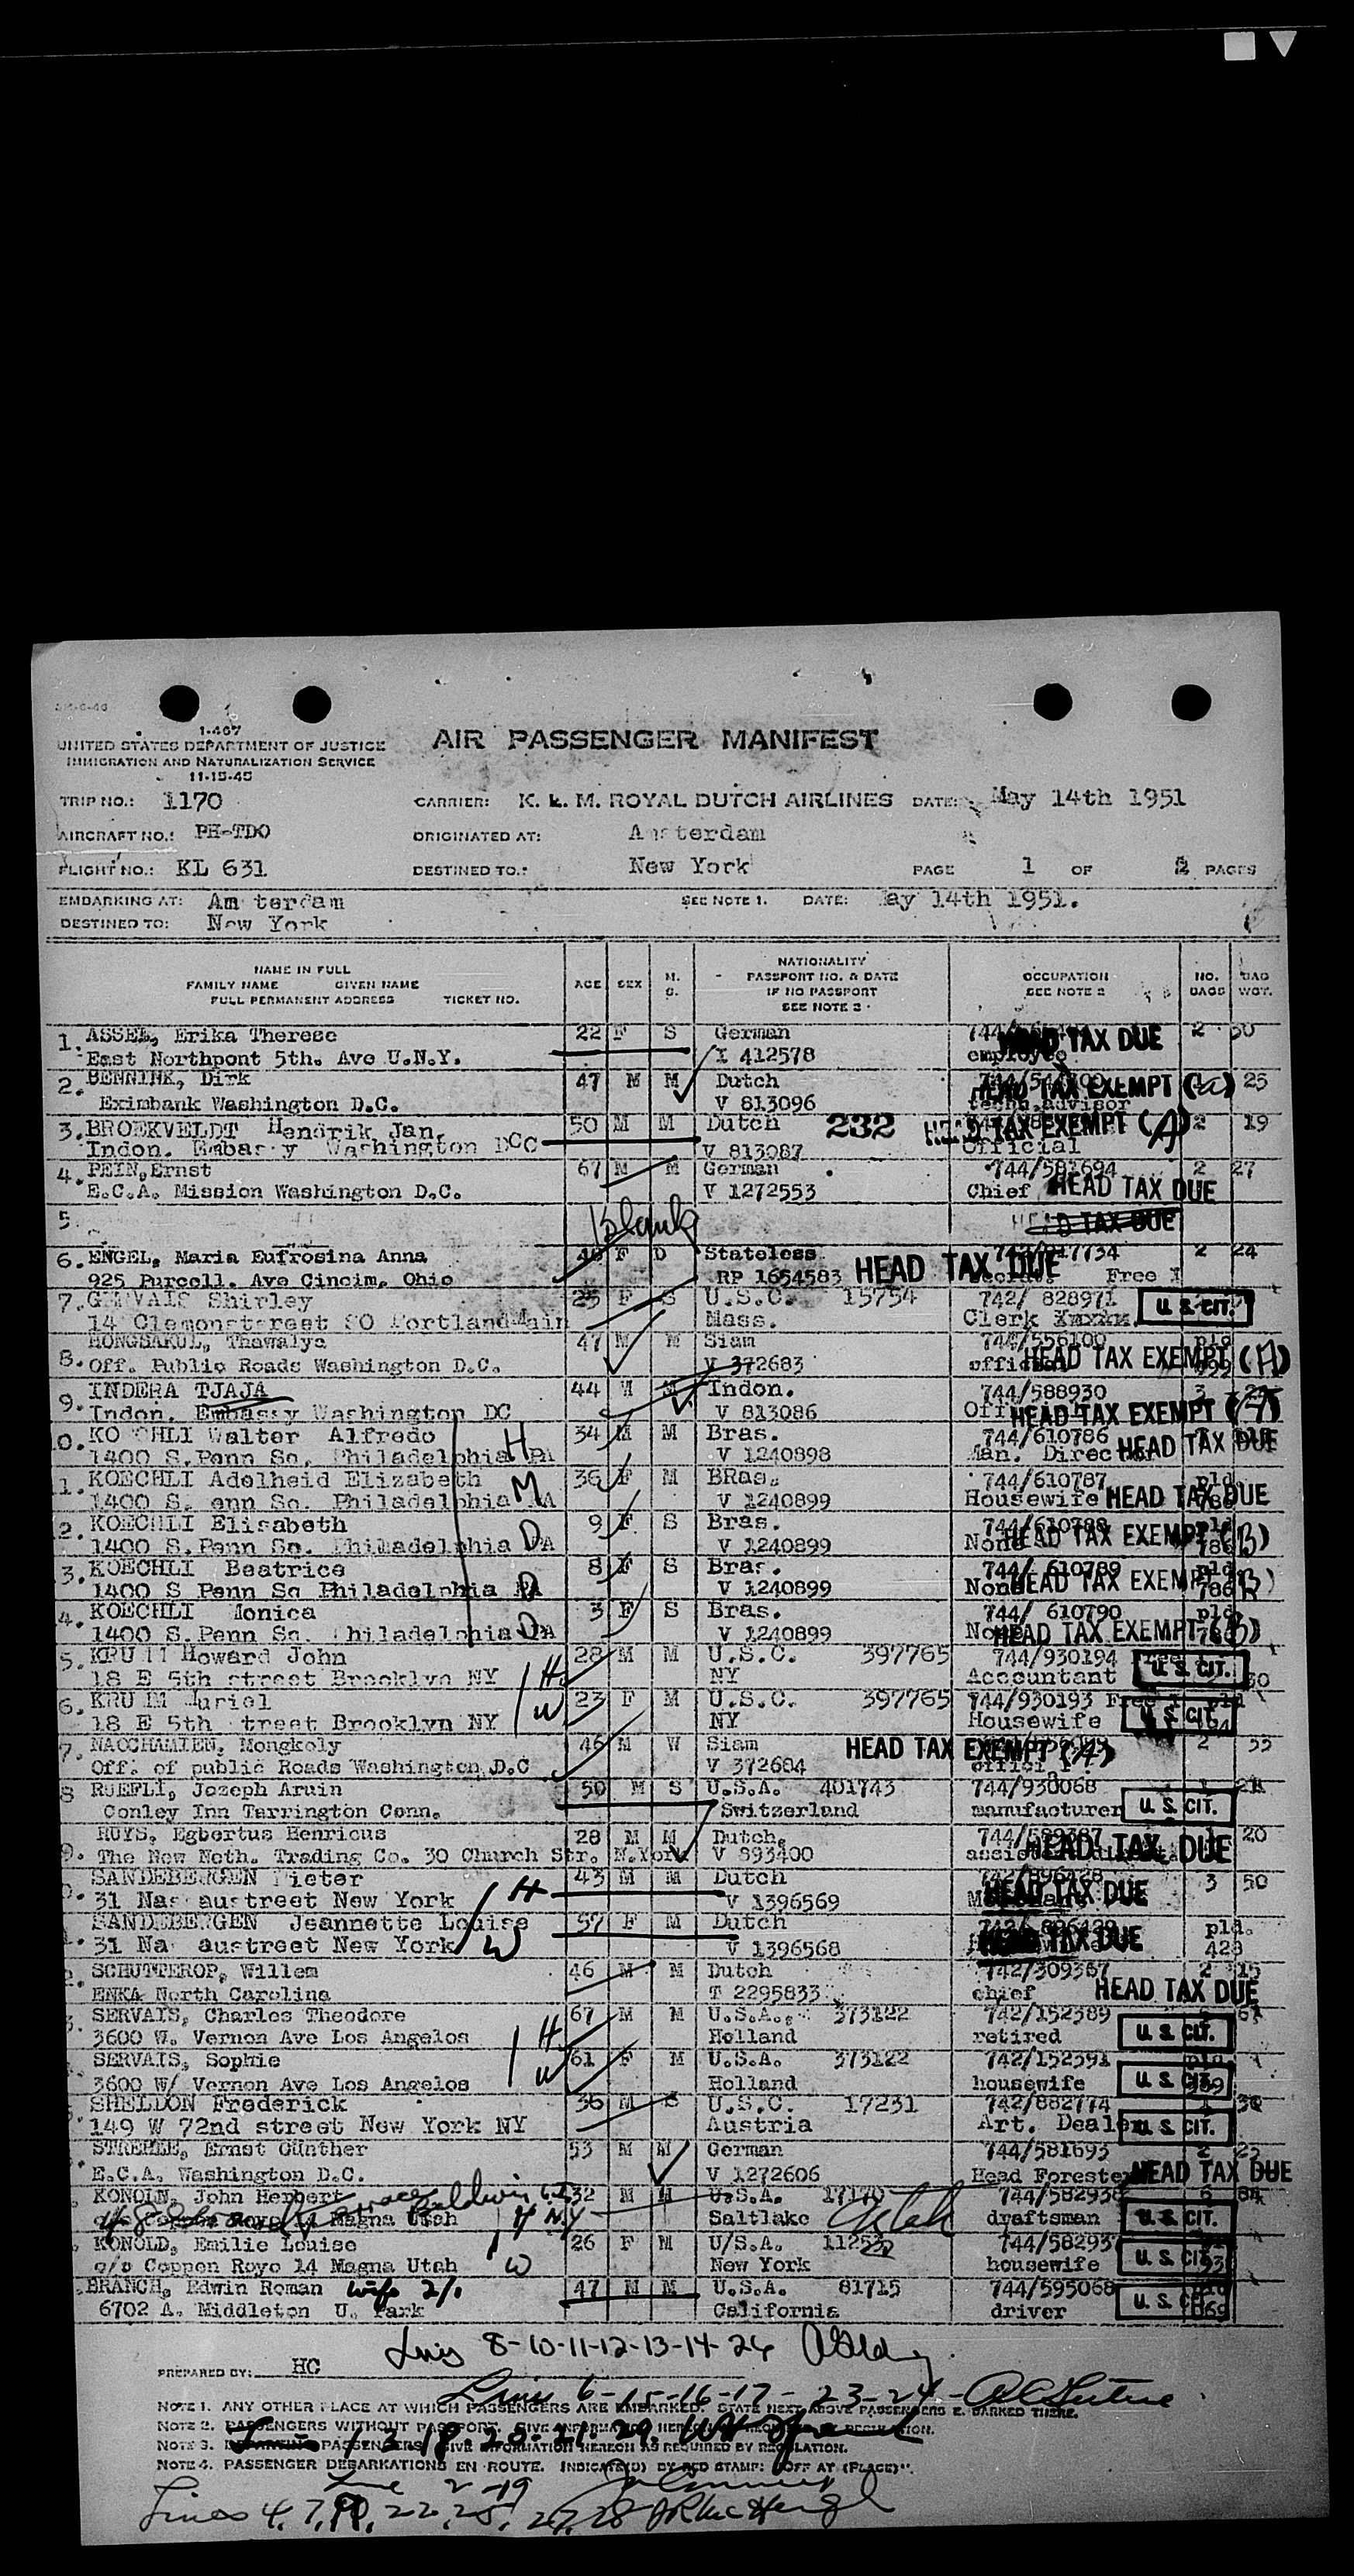 1-467
UNITED STATES DEPARTMENT OF JUSTICE
IMMIGRATION AND NATURALIZATION SERVICE
11-15-45
AIR PASSENGER MANIFEST
TRIP NO.: 1170 CARRIER: K. L. M. ROYAL DUTCH AIRLINES DATE: May 14th 1951
AIRCRAFT NO.: PH-TDO ORIGINATED AT: Amsterdam
FLIGHT NO.: KL 631 DESTINED TO.: New York PAGE 1 OF 2 PAGES
EMBARKING AT: Am terdam SEE NOTE 1. DATE: ay 14th 1951.
DESTINED TO: New York
NAME IN FULL
FAMILY NAME GIVEN NAME
FULL PERMANENT ADDRESS TICKET NO.
AGE SEX M. S.
NATIONALITY
PASSPORT NO. & DATE
IF NO PASSPORT
SEE NOTE 3
OCCUPATION
SEE NOTE 2
NO. BAGS BAG WGT.
1. ASSEL, Erika Therese 22 F S German HEAD TAX DUE 2 30
East Northpont 5th. Ave U.N.Y. I 412578 employee
2. BENNINK, Dirk 47 M M Dutch HEAD TAX EXEMPT (a) 25
Eximbank Washington D.C. V 813096 techn.advisor
3. BROEKVELDT Hendrik Jan. 50 M M Dutch 232 HEAD TAX EXEMPT (A) 2 19
Indon. Embas y Washington DCC V 813087 Official
4. PEIN,Ernst 67 M M German 744/581694 2 27
E.C.A. Mission Washington D.C. V 1272553 Chief HEAD TAX DUE
5. Blank HEAD TAX DUE
6. ENGEL, Maria Eufrosina Anna F D Stateless 2 24
925 Purcell. Ave Cincim. Ohio RP 1654583 HEAD TAX DUE Free
7. GERVAIS Shirley 25 F S U.S.C. 15754 742/ 828971 U. S. CIT.
14 Clemonstreet SO Portland Main Mass. Clerk
8. HONGSAKUL, Thawalya 47 M M Siam 744/556100 pld
Off. Public Roads Washington D.C. V 372683 official HEAD TAX EXEMPT (A)
9. INDERA TJAJA 44 M M Indon. 744/588930 3
Indon. Embassy Washington DC V 813086 HEAD TAX EXEMPT (A)
0. KO CHLI Walter Alfredo H 34 M M Bras. 744/610786
1400 S.Penn Sq. Philadelphia PA V 1240898 Man. Direc HEAD TAX DUE
1. KOECHLI Adelheid Elizabeth M 36 F M BRas. 744/610787 pld
1400 S. enn Sq. Philadelphia V 1240899 Housewife HEAD TAX DUE
2. KOECHLI Elisabeth D 9 F S Bras. 744/610788 pld
1400 S.Penn Sq. Philadelphia PA V 1240899 None HEAD TAX EXEMPT (B) 786
3. KOECHLI Beatrice D 8 F S Bras. 744/ 610789 pld
1400 S Penn Sq Philadelphia PA V 1240899 None HEAD TAX EXEMPT (B) 786
4. KOECHLI Monica 3 F S Bras. 744/ 610790 pld
1400 S.Penn Sq. Philadelphia PA D V 1240899 None HEAD TAX EXEMPT (B)
5. KRU Howard John H 28 M M U.S.C. 397765 744/930194
18 E 5th street Brooklyn NY NY Accountant U. S. CIT. 30
6. KRU Muriel W 23 F M U.S.C. 397765 744/930193 Free pld
18 E 5th treet Brooklyn NY NY Housewife U. S. CIT.
7. NAOCHAMIEN, Mongkoly 46 M W Siam HEAD TAX EXEMPT (A) 2 33
Off. of public Roads Washington D.C V 372684
8 RUEFLI, Joseph Arwin 50 M S U.S.A. 401743 744/930068
Conley Inn Tarrington Conn. Switzerland manufacturer U. S. CIT.
9. RUYS, Egbertus Henricus 28 M M Dutch. 20
The New Neth. Trading Co. 30 Church Str. N.York V 893400 HEAD TAX DUE
0. SANDEBERGEN Pieter H 43 M M Dutch 3 50
31 Nas austreet New York V 1396569 HEAD TAX DUE
SANDEBERGEN Jeannette Louise 57 F M Dutch pld.
31 Na austreet New York W V 1396568 HEAD TAX DUE 428
2. SCHUTTEROP, Willem 46 M M Dutch 742/309367 2 15
ENKA North Carolina T 2295833 chief HEAD TAX DUE
SERVAIS, Charles Theodore H 67 M M U.S.A. 373122 742/152389
3600 W. Vernon Ave Los Angelos Holland retired U. S. CIT.
SERVAIS, Sophie W 61 F M U.S.A. 373122 742/152391
3600 W/ Vernon Ave Los Angelos Holland housewife U. S. CIT.
SHELDON Frederick 36 M S U.S.C. 17231 742/882774
149 W 72nd street New York NY Austria Art. Dealer U. S. CIT.
STREHLE, Ernst Günther 53 M M German 744/581693 2 25
E.C.A. Washington D.C. V 1272606 Head Forester HEAD TAX DUE
KONOLD, John Herbert 32 M M U.S.A. 17170 744/582938 84
Magna Utah H Saltlake Utah draftsman U. S. CIT.
KONOLD, Emilie Louise 26 F M U/S.A. 744/58293
c/o Coppen Royo 14 Magna Utah W New York housewife U. S. CIT.
BRANCH, Edwin Roman 47 M M U.S.A. 81715 744/595068
6702 A. Middleton U. Park California driver U. S. CIT.
Lines 8-10-11-12-13-14-26
PREPARED BY: HC
Lines 6-15-16-17-23-24-
NOTE 1. ANY OTHER PLACE AT WHICH PASSENGERS ARE EMBARKED. STATE NEXT ABOVE PASSENGERS EMBARKED THERE.
NOTE 2. PASSENGERS WITHOUT PASSPORT. GIVE INFORMATION HEREON AS REQUIRED BY REGULATION.
NOTE 3. DEPARTING PASSENGERS GIVE INFORMATION HEREON AS REQUIRED BY REGULATION.
1 3 18. 20. 21. 29.
NOTE 4. PASSENGER DEBARKATIONS EN ROUTE. INDICATE(D) BY RED STAMP: "OFF AT (PLACE)".
Line 2-19
Lines 4, 7, 22, 25, 27, 28